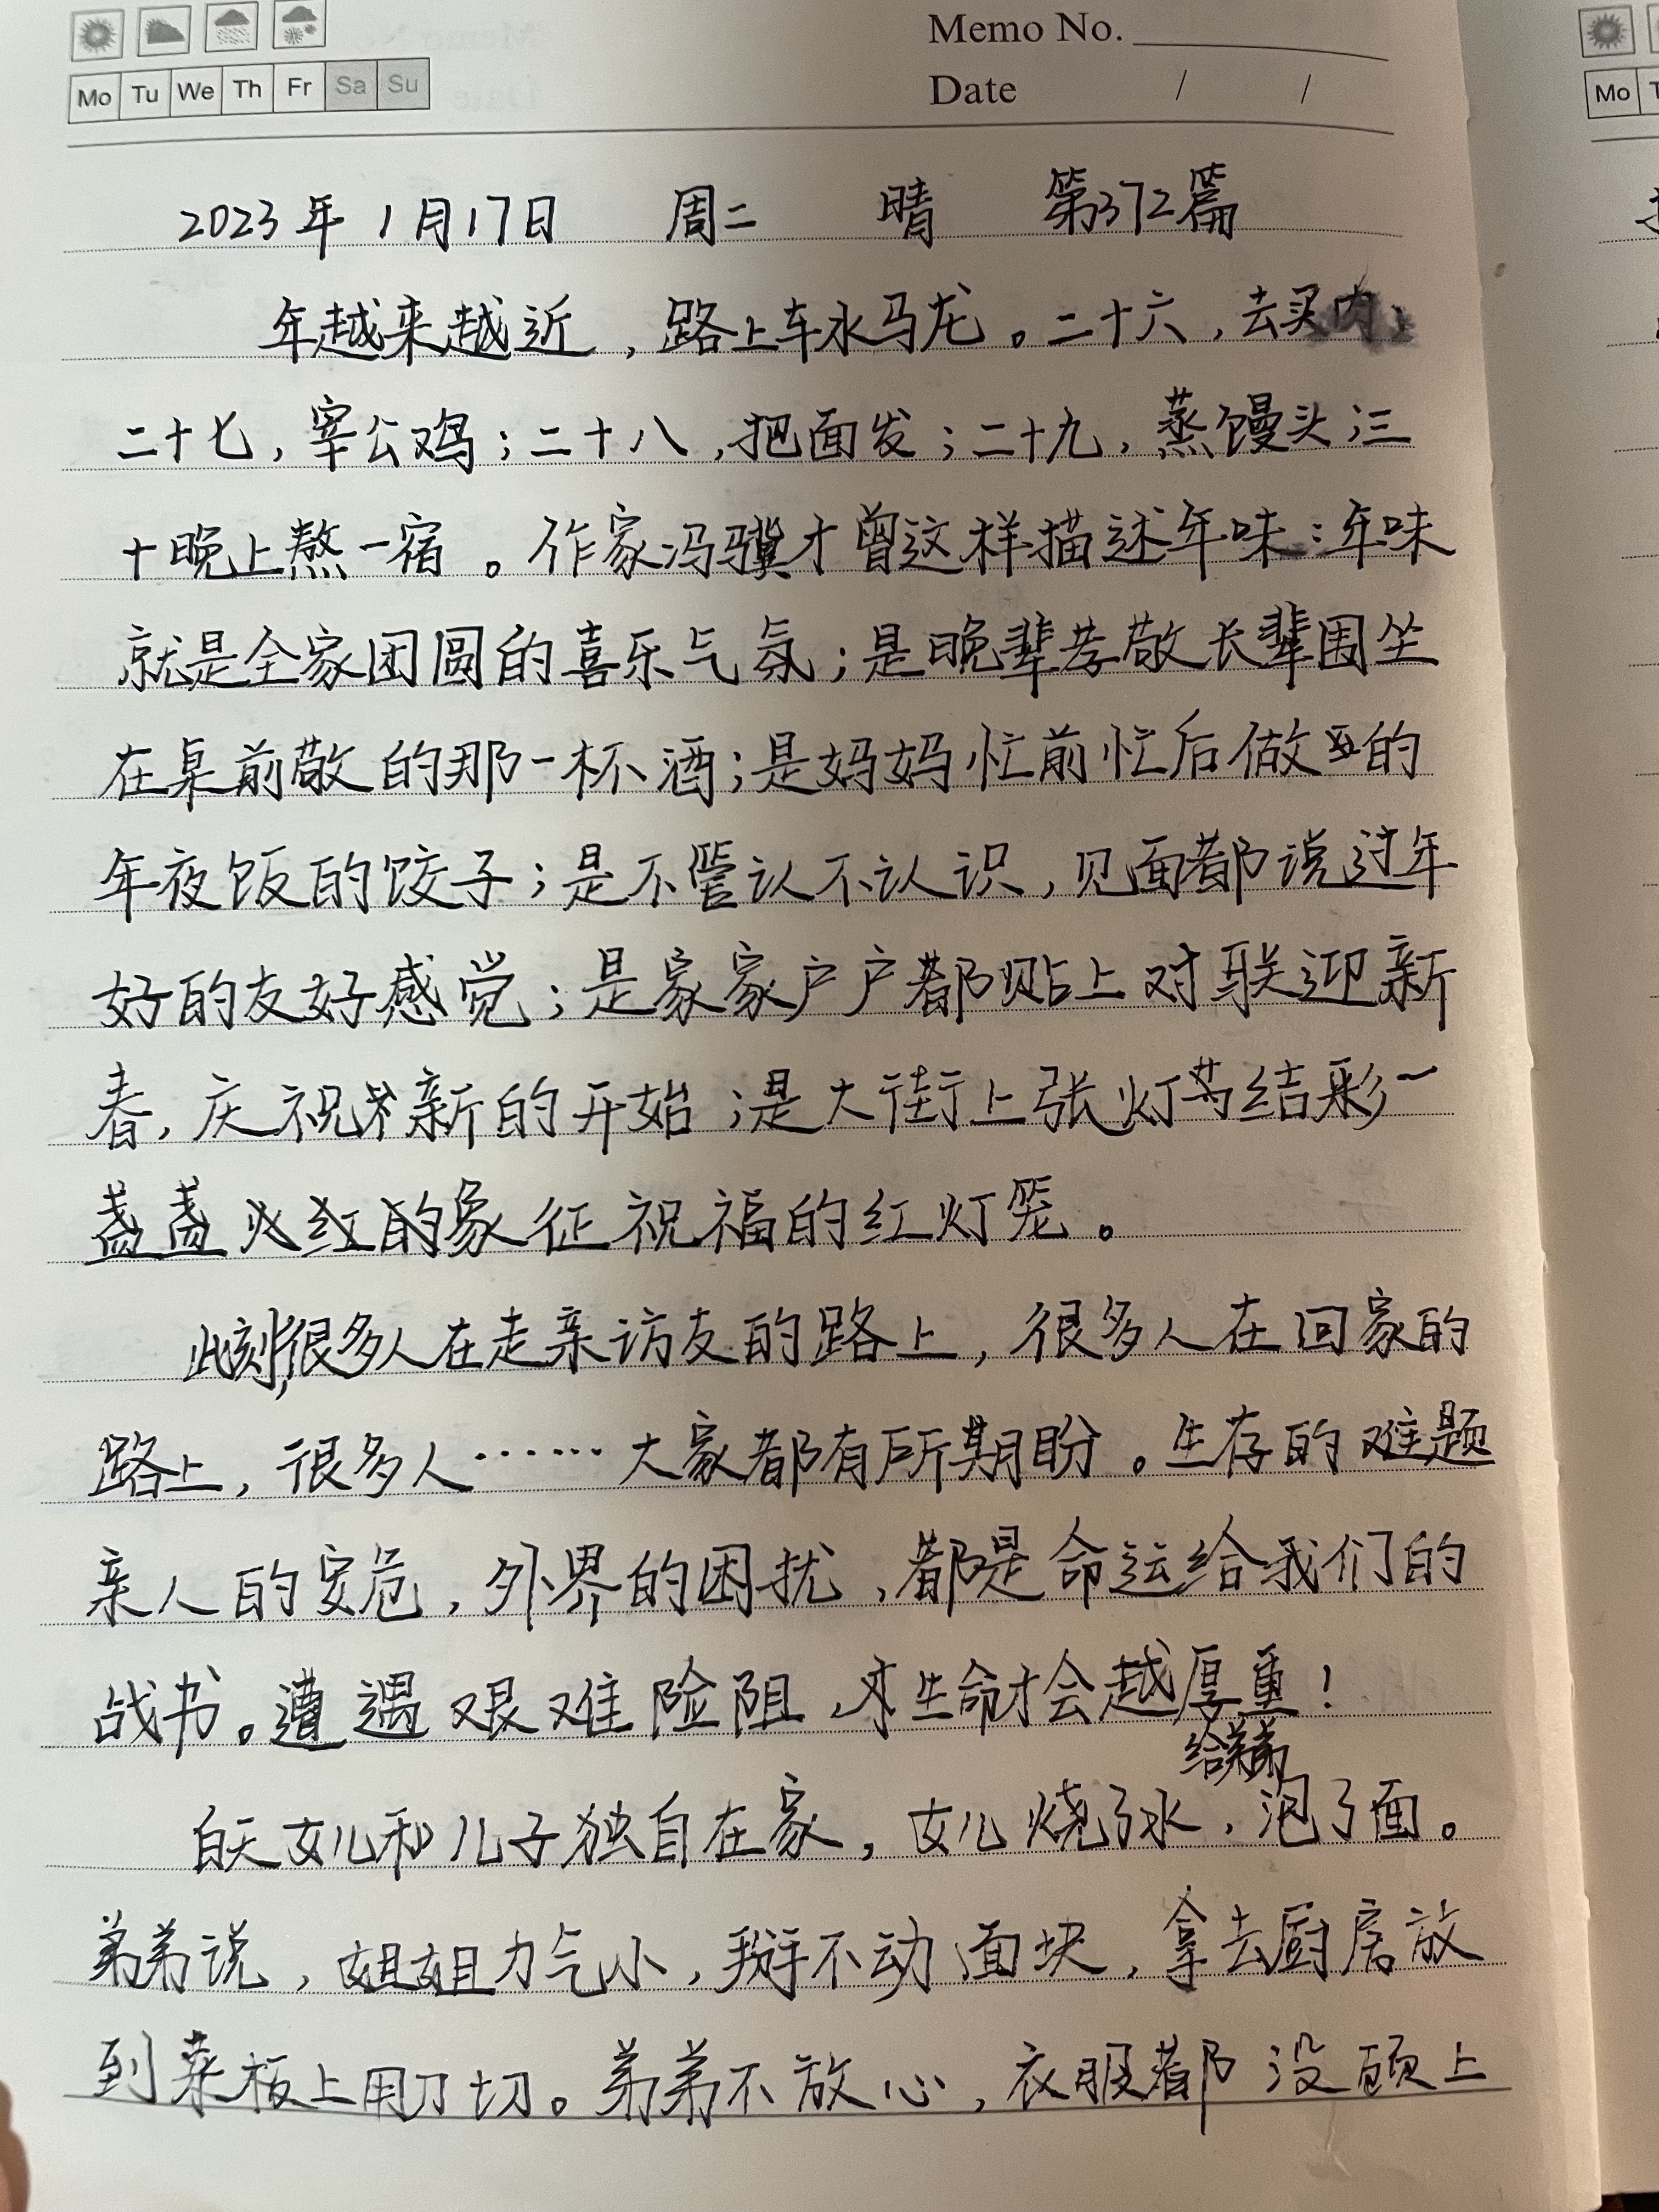 Memo No.
Mo Tu We Th Fr Sa Su
Date / /
Mo
2023年1月17日 周二 晴 第372篇
年越来越近，路上车水马龙。二十六，去买肉；
二十七，宰公鸡；二十八，把面发；二十九，蒸馒头；三
十晚上熬一宿。作家冯骥才曾这样描述年味：年味
就是全家团圆的喜乐气氛；是晚辈孝敬长辈围坐
在桌前敬的那一杯酒；是妈妈忙前忙后做的
年夜饭的饺子；是不管认不认识，见面都说过年
好的友好感觉；是家家户户都贴上对联迎新
春，庆祝新的开始；是大街上张灯结彩一
盏盏火红的象征祝福的红灯笼。
此刻，很多人在走亲访友的路上，很多人在回家的
路上，很多人……大家都有所期盼。生存的难题
亲人的安危，外界的困扰，都是命运给我们的
战书。遭遇艰难险阻，生命才会越厚重！
给弟弟
白天女儿和儿子独自在家，女儿烧了水，泡了面。
弟弟说，姐姐力气小，掰不动面块，拿去厨房放
到菜板上用刀切。弟弟不放心，衣服都没顾上